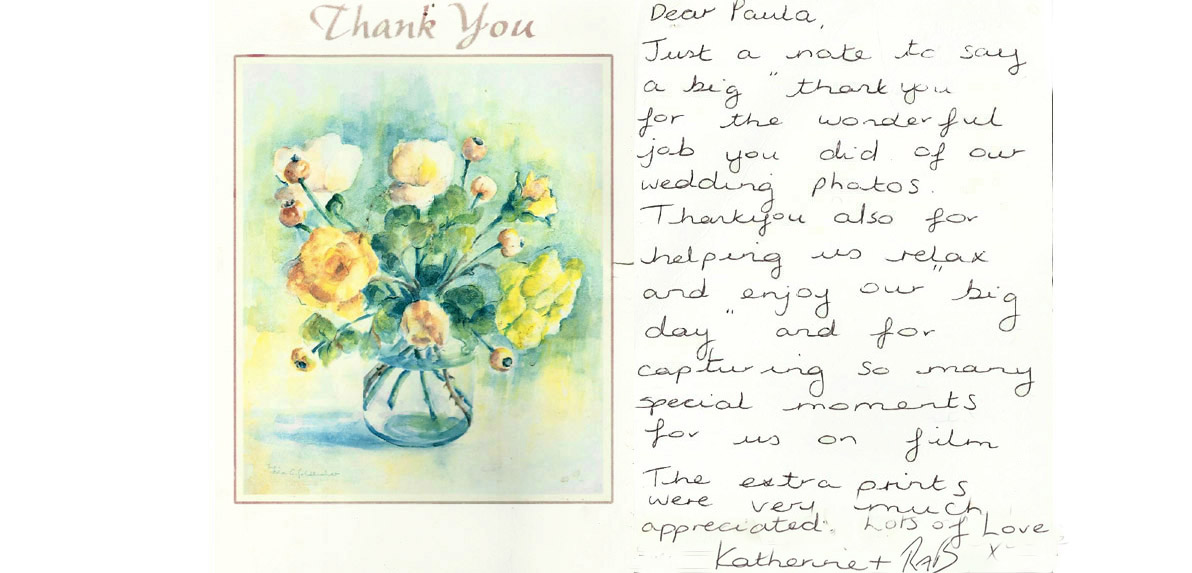 Thank You
Dear Paula,
Just a note to say
a big "thank you
for the wonderful
job you did of our
wedding photos.
Thankyou also for
helping us relax
and enjoy our "big
day" and for
capturing so many
special moments
for us on film
The extra prints
were very much
appreciated. Lots of Love
Katherine + Rab x